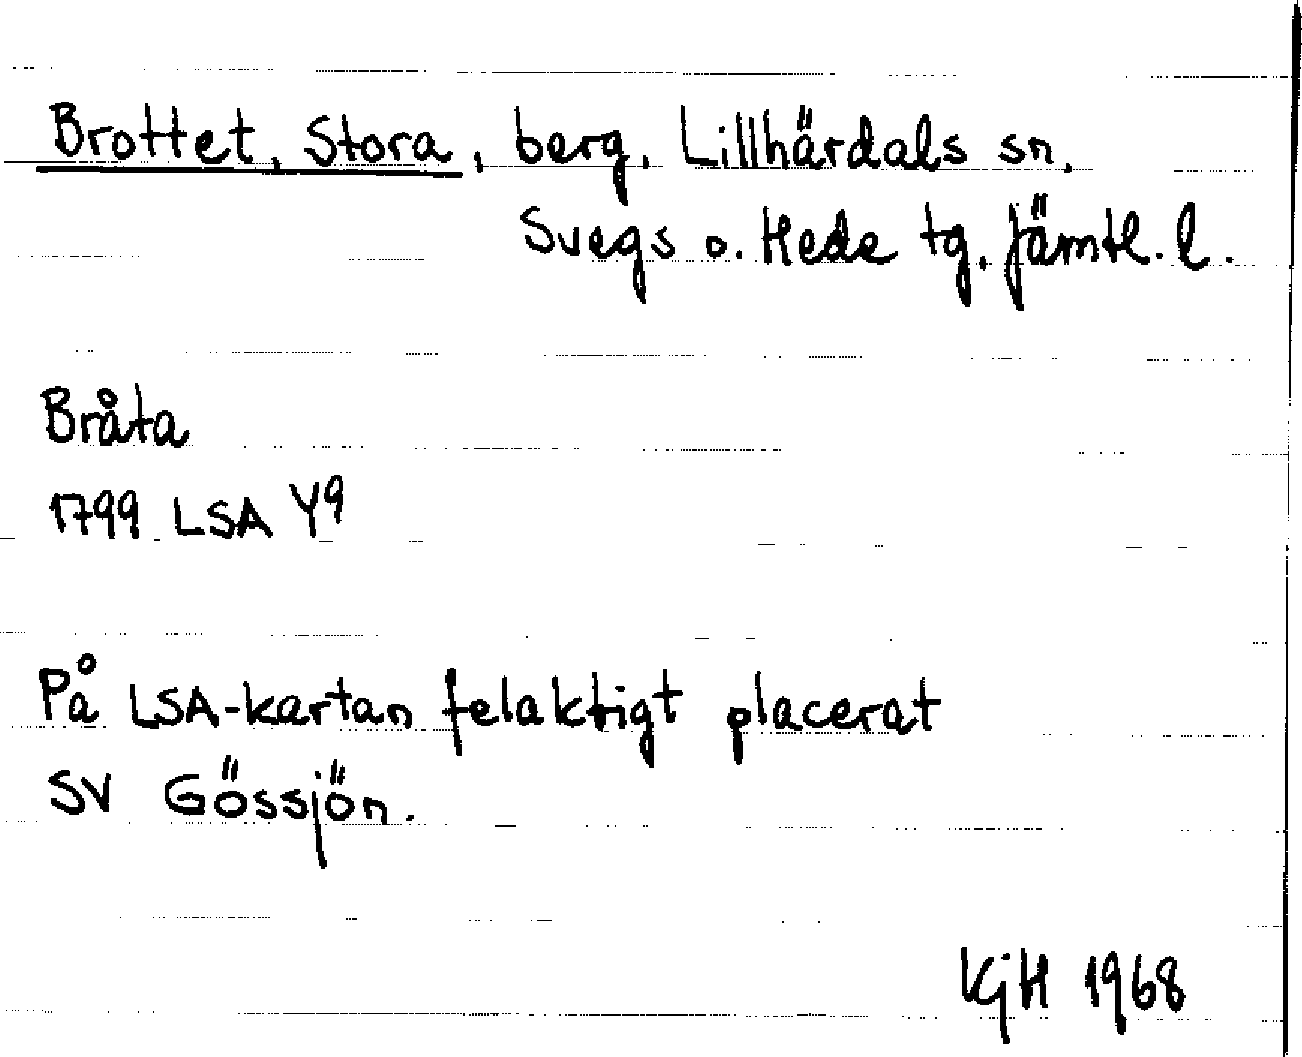 Brottet, Stora, berg, Lillhärdals sn,
Svegs o. Hede tg, Jämtl. l.
Bråta
1799 LSA Y9
På LSA-kartan felaktigt placerat
SV Gössjön.
KjH 1968